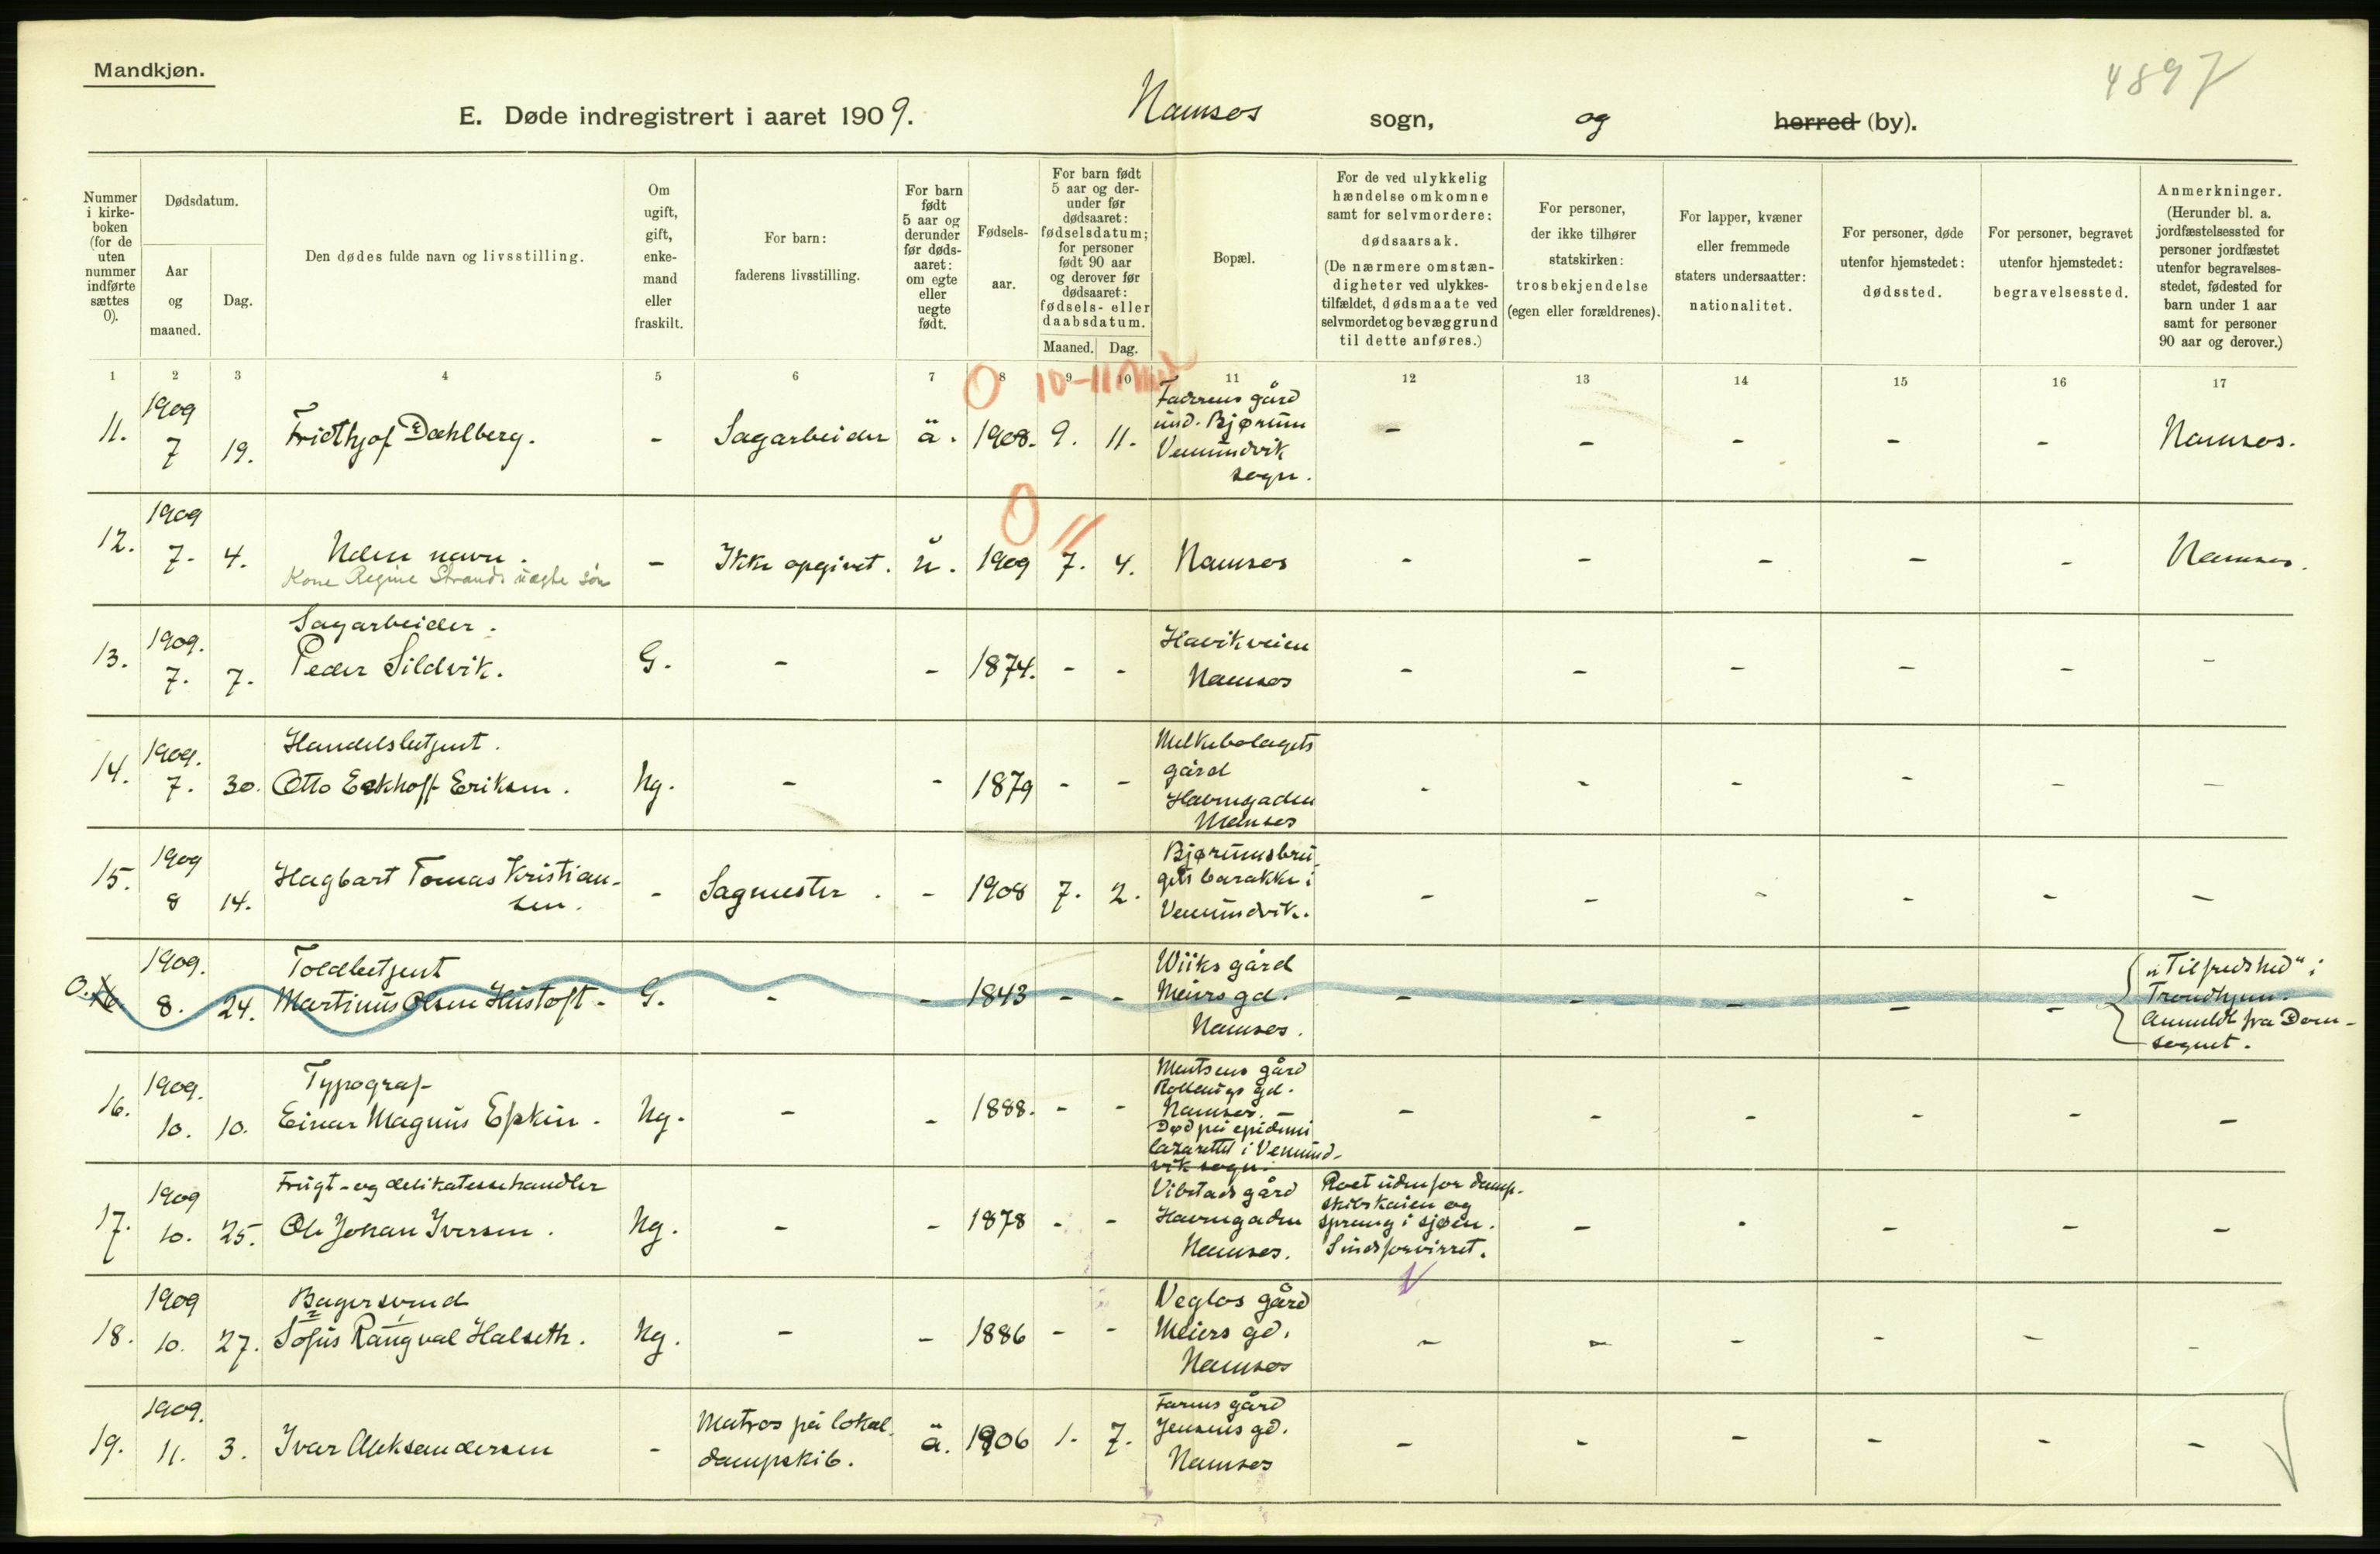 Mandkjøn.
4897
E. Døde indregistrert i aaret 1909. Namsos sogn, og herred (by).
Nummer i kirke-boken (for de uten nummer indførte sættes 0).
Dødsdatum.
Aar og maaned.
Dag.
Den dødes fulde navn og livsstilling.
Om ugift, gift, enke-mand eller fraskilt.
For barn: faderens livsstilling.
For barn født 5 aar og derunder før døds-aaret: om egte eller uegte født.
Fødsels-aar.
For barn født 5 aar og der-under før dødsaaret: fødselsdatum; for personer født 90 aar og derover før dødsaaret: fødsels- eller daabsdatum.
Maaned. Dag.
Bopæl.
For de ved ulykkelig hændelse omkomne samt for selvmordere: dødsaarsak. (De nærmere omstæn-digheter ved ulykkes-tilfældet, dødsmaate ved selvmordet og bevæggrund til dette anføres.)
For personer, der ikke tilhører statskirken: trosbekjendelse (egen eller forældrenes).
For lapper, kvæner eller fremmede staters undersaatter: nationalitet.
For personer, døde utenfor hjemstedet: dødssted.
For personer, begravet utenfor hjemstedet: begravelsessted.
Anmerkninger. (Herunder bl. a. jordfæstelsessted for personer jordfæstet utenfor begravelses-stedet, fødested for barn under 1 aar samt for personer 90 aar og derover.)
1 2 3 4 5 6 7 8 9 10 11 12 13 14 15 16 17
0 10-11 Md
11. 1909 7 19. Fridthjof Dahlberg. - Sagarbeider ä. 1908. 9. 11. gård und. Bjørum Vemundvik sogn. - - - - - Namsos.
0 11
12. 1909 7. 4. Uden navn. - Ikke opgivet. u. 1909 7. 4. Namsos - - - - - Namsos.
Kone Regine Strands uægte søn
13. 1909. 7. 7. Sagarbeider. Peder Sildvik. G. - - 1874. - - Havikveien Namsos - - - - - -
14. 1909. 7. 30. Handelsbetjent. Otto Eckhoff Eriksen. Ug. - - 1879 - - Melkebolagets gård Havnegaden Namsos - - - - - -
15. 1909 8 14. Hagbart Tomas Kristian-sen. - Sagmester. - 1908 7. 2. Bjørumsbru-gets barakke i Vemundvik. - - - - - -
0. 16 1909. 8. 24. Toldbetjent Martinus Olsen Hustoft - G. - - 1843 - - Wiiks gård Meiers gd. Namsos. - - - - - "Tilfredshed" i Trondhjem. Anmeldt fra Dom-sognet.
16. 1909. 10. 10. Typograf Einar Magnus Epkin. Ug. - - 1888. - - gård gd. Namsos. - Død på epidemi lazarettet i Vemund-vik sogn. - - - - - -
17. 1909 10. 25. Frugt- og delikatessehandler Ole Johan Iversen. Ug. - - 1878 - - Vibstads gård Havnegaden Namsos. Roet udenfor damp-skibskaien og sprang i sjøen. Sindsforvirret. - - - - -
18. 1909 10. 27. Bagersvend Sofus Rangval Halseth. Ug. - - 1886 - - Veglos gård Meiers gd. Namsos - - - - - -
19. 1909. 11. 3. Ivar Aleksandersen - Matros på lokal-dampskib. ä. 1906 1. 7. gård Jensens gd. Namsos - - - - - -